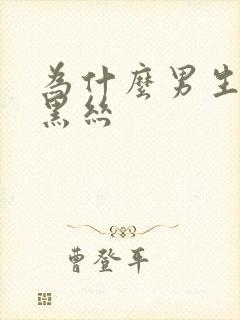 為什麼男生
黑絲
曹登平